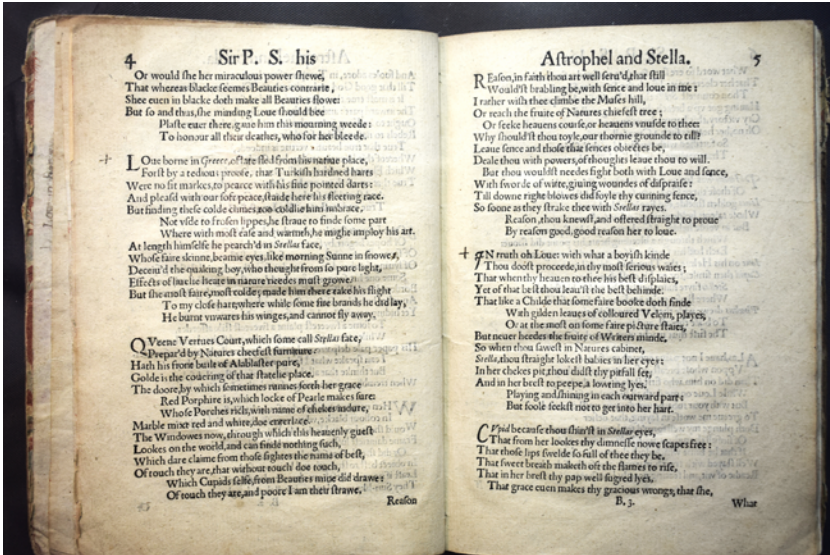 4 Sir P. S. his
Or would she her miraculous power shewe,
That whereas blacke seemes Beauties contrarie,
Shee euen in blacke doth make all Beauties flowe:
But so and thus, she minding Loue should bee
Plaste euer there, gaue him this mourning weede:
To honour all their deathes, who for her bleede.
LOue borne in Greece, of late fled from his natiue place,
Forst by a tedious proofe, that Turkish hardned harts
Were no fit markes, to pearce with his fine pointed darts:
And pleasd with our soft peace, staide here his fleeting race.
But finding these colde climes, too coldlie him imbrace,
Not vsde to frosen lippes, he straue to finde some part
Where with most ease and warmth, he might imploy his art.
At length himselfe he pearch'd in Stellas face,
Whose faire skinne, beamie eyes, like morning Sunne in snowe,
Deceiu'd the quaking boy, who thought from so pure light,
Effects of liuelie heate in nature needes must growe.
But she most faire, most colde; made him there take his flight
To my close hart, where while some fire brands he did lay,
He burnt vnwares his winges, and cannot fly away.
QVeene Vertues Court, which some call Stellas face,
Prepar'd by Natures cheefest furniture:
Hath his front built of Alablaster pure,
Golde is the couering of that statelie place.
The doore, by which sometimes runnes forth her grace
Red Porphire is, which locke of Pearle makes sure:
Whose Porches rich, with name of chekes indure,
Marble mixt red and white, doe enterlace.
The Windowes now, through which this heauenly guest
Lookes on the world, and can finde nothing such,
Which dare claime from those sightes the name of best,
Of touch they are, that without touch doe touch,
Which Cupids selfe, from Beauties mine did drawe:
Of touch they are, and poore I am their strawe.
Reason
Astrophel and Stella. 5
REason, in faith thou art well seru'd, that still
Would'st brabling be, with sence and loue in me:
I rather wish thee climbe the Muses hill,
Or reach the fruite of Natures chiefest tree;
Or seeke heauens course, or heauens vnusde to thee:
Why should'st thou toyle, our thornie grounde to till?
Leaue sence and those that sences obiectes be,
Deale thou with powers, of thoughts leaue thou to will.
But thou wouldst needes fight both with Loue and sence,
With sworde of witte, giuing woundes of dispraise:
Till downe right blowes did foyle thy cunning sence,
So soone as they strake thee with Stellas rayes.
Reason, thou knewst, and offered straight to proue
By reason good, good reason her to loue.
IN truth oh Loue: with what a boyish kinde
Thou doost proceede, in thy most serious waies;
That when thy heauen to thee his best displaies,
Yet of that best thou leau'st the best behinde.
That like a Childe that some faire booke doth finde
With gilden leaues of colloured Velom, playes,
Or at the most on some faire picture staies,
But neuer heedes the fruite of Writers minde.
So when thou sawest in Natures cabinet,
Stella, thou straight lokest babies in her eyes:
In her chekes pit, thou didst thy pitfall set,
And in her brest to peepe, a lowting lyes,
Playing and shining in each outward part:
But foole seekst not to get into her hart.
CVpid because thou shin'st in Stellas eyes,
That from her lookes thy dimnesse nowe scapes free:
That those lips swelde so full of thee they be,
That sweet breath maketh oft the flames to rise,
That in her brest thy pap well sugred lyes,
That grace euen makes thy gracious wrongs, that she,
B. 3. What